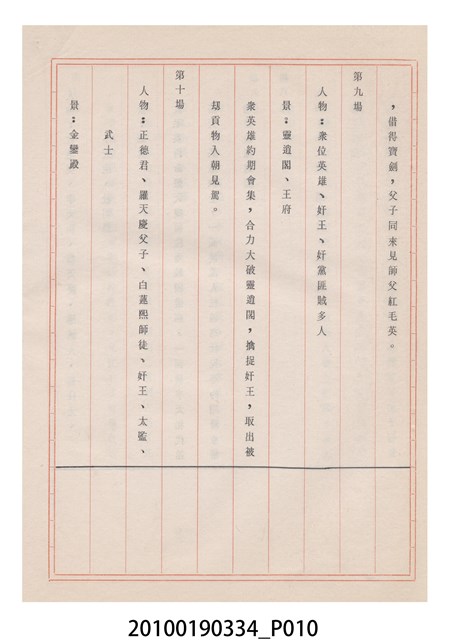 ，借得寶劍，父子同來見師父紅毛英。
第九場
人物：衆位英雄、奸王、奸黨匪賊多人
景：靈逍閣、王府
衆英雄約期會集，合力大破靈逍閣，擒捉奸王，取出被
刼貢物入朝見駕。
第十場
人物：正德君、羅天慶父子、白蓮熙師徒、奸王、太監、
武士
景：金鑾殿
20100190334_P010